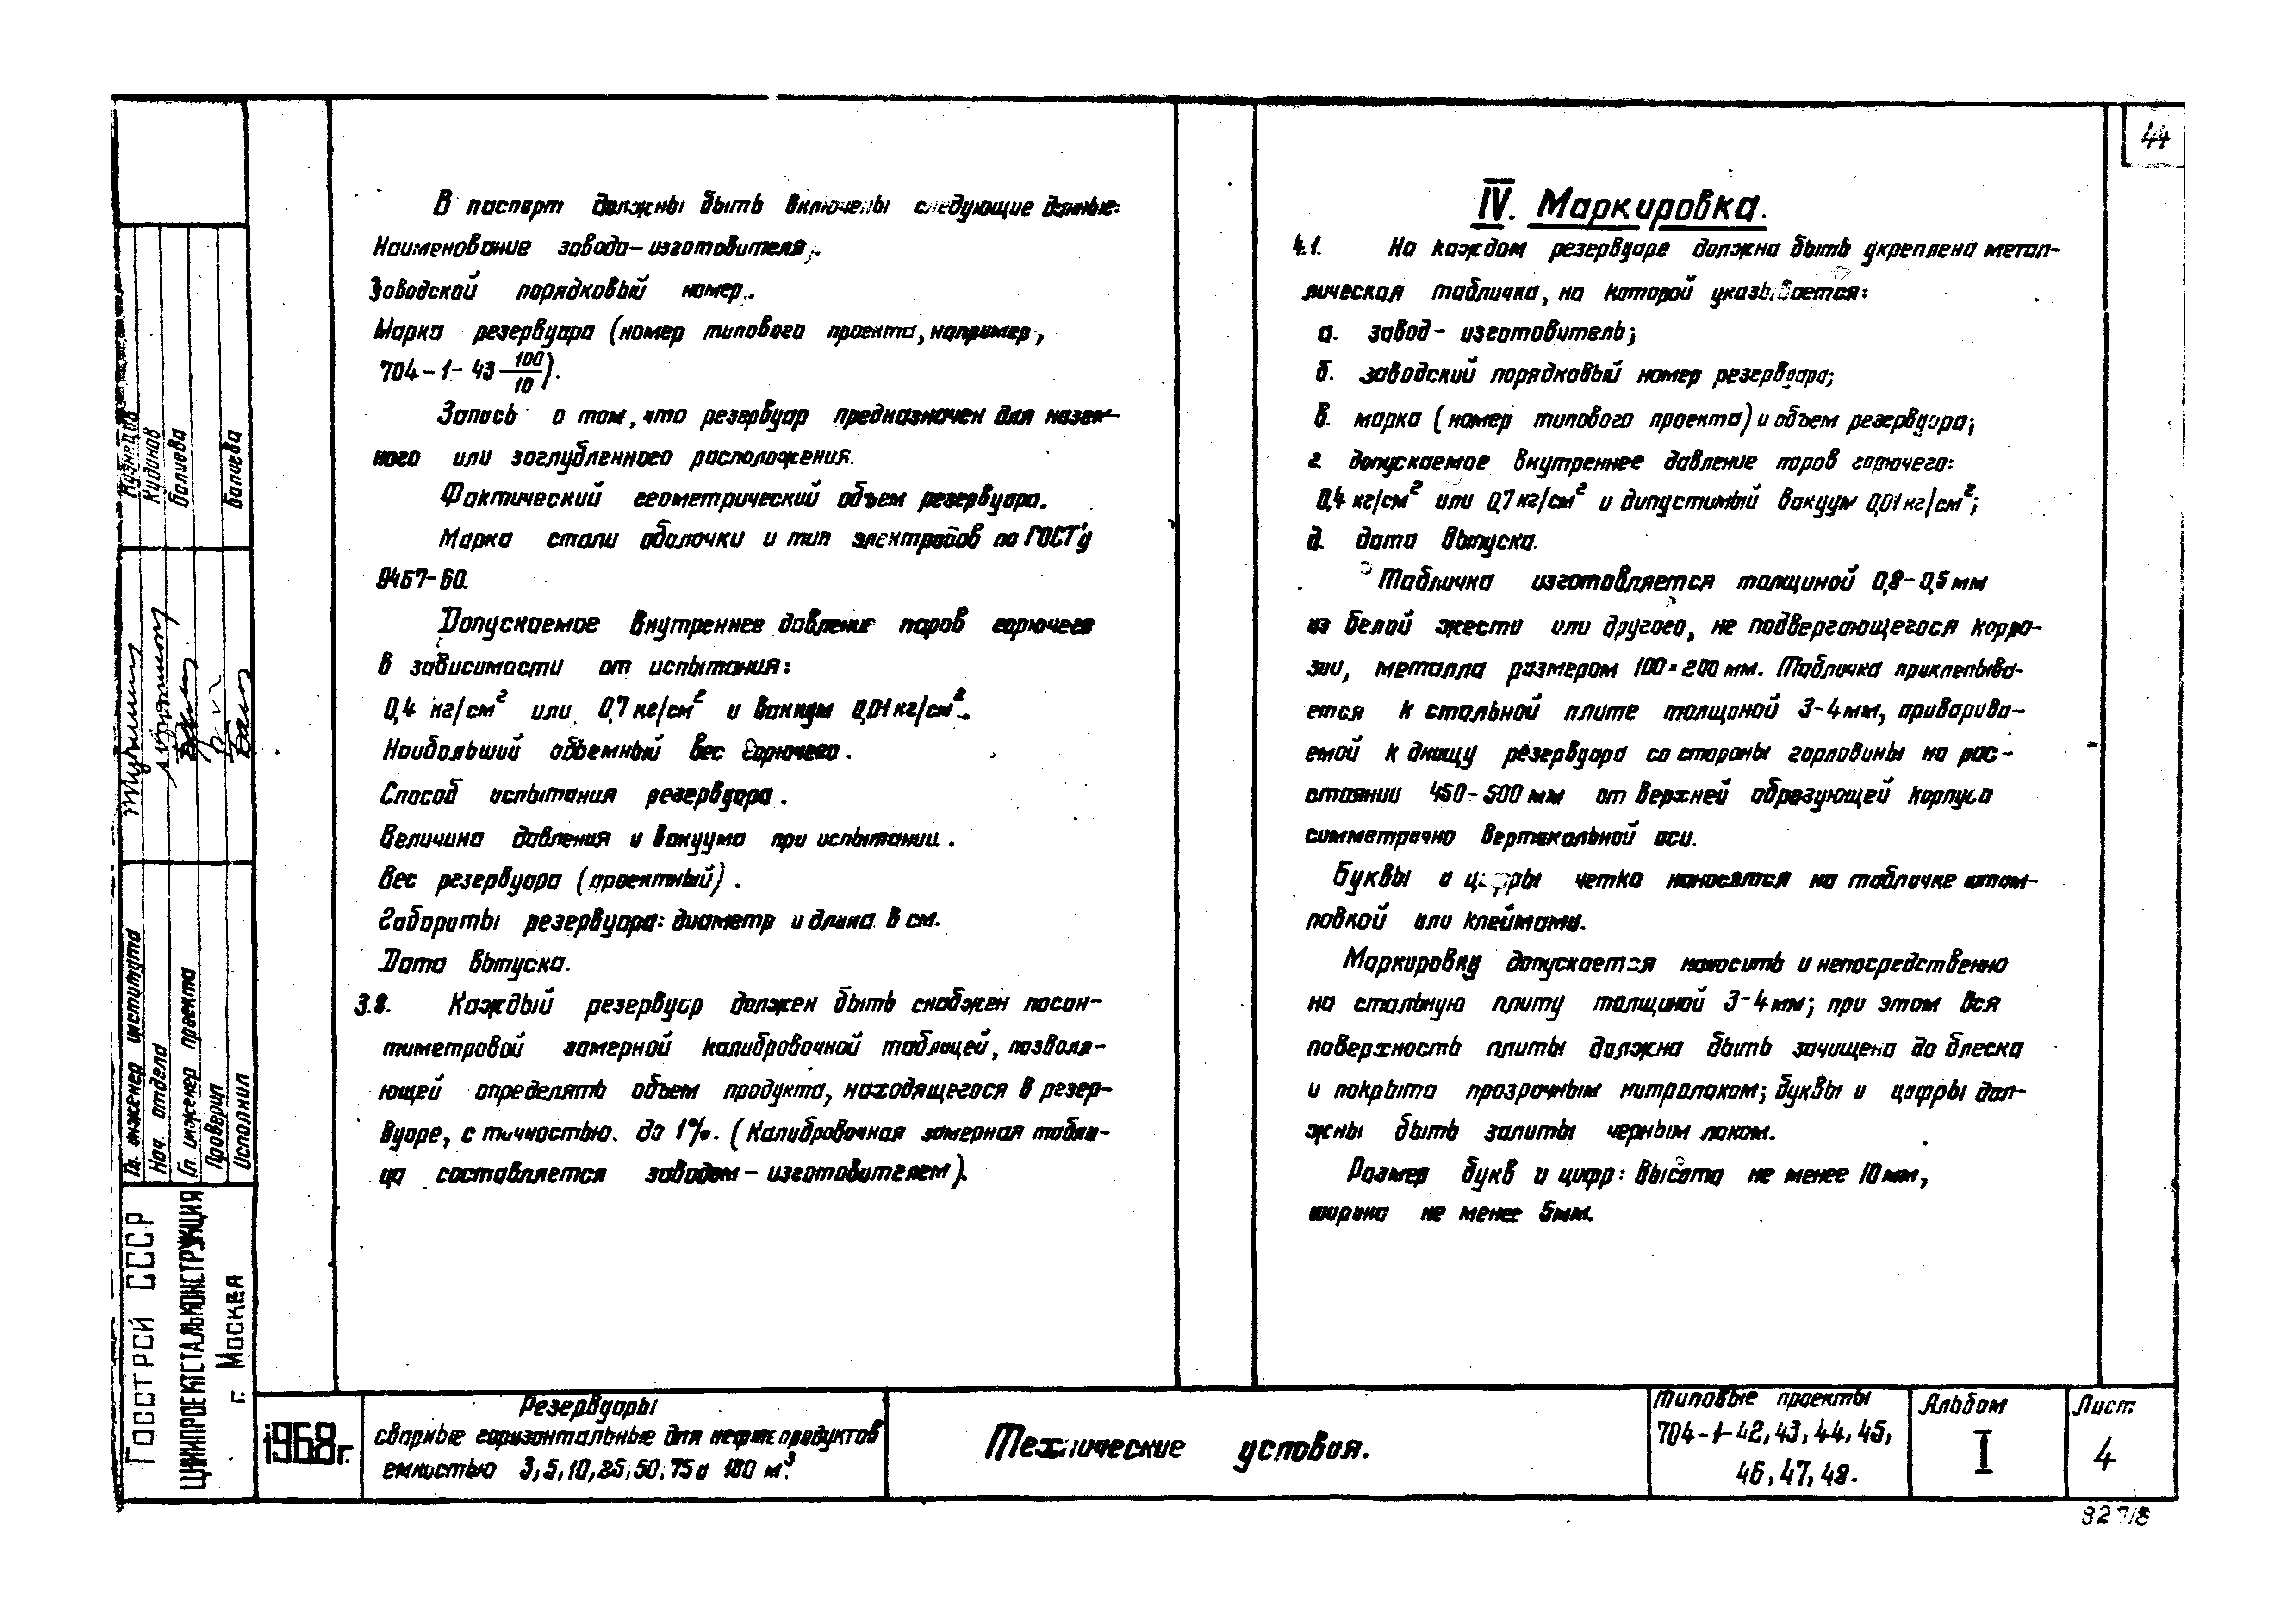 44
В паспорт должны быть включены следующие данные:
Наименование завода-изготовителя;.
Заводской порядковый номер.
Марка резервуара (номер типового проекта, например,
704-1-43 100/10).
Запись о том, что резервуар предназначен для назем-
ного или заглубленного расположения.
Фактический геометрический объем резервуара.
Марка стали оболочки и тип электродов по ГОСТ'у
9467-60.
Допускаемое внутреннее давление паров горючего
в зависимости от испытания:
0,4 кг/см² или 0,7 кг/см² и вакуум 0,01 кг/см².
Наибольший объемный вес горючего.
Способ испытания резервуара.
Величина давления и вакуума при испытании.
Вес резервуара (проектный).
Габариты резервуара: диаметр и длина в см.
Дата выпуска.
3.8. Каждый резервуар должен быть снабжен посан-
тиметровой замерной калибровочной таблицей, позволя-
ющей определять объем продукта, находящегося в резер-
вуаре, с точностью до 1%. (Калибровочная замерная табли-
ца составляется заводом-изготовителем).
IV. Маркировка.
4.1. На каждом резервуаре должна быть укреплена метал-
лическая табличка, на которой указывается:
а. завод-изготовитель;
б. заводской порядковый номер резервуара;
в. марка (номер типового проекта) и объем резервуара;
г. допускаемое внутреннее давление паров горючего:
0,4 кг/см² или 0,7 кг/см² и допустимый вакуум 0,01 кг/см²;
д. дата выпуска.
Табличка изготовляется толщиной 0,8-0,5 мм
из белой жести или другого, не подвергающегося корро-
зии, металла размером 100×200 мм. Табличка приклепыва-
ется к стальной плите толщиной 3-4 мм, приварива-
емой к днищу резервуара со стороны горловины на рас-
стоянии 450-500 мм от верхней образующей корпуса
симметрично вертикальной оси.
Буквы и цифры четко наносятся на табличке штам-
повкой или клеймами.
Маркировку допускается наносить и непосредственно
на стальную плиту толщиной 3-4 мм; при этом вся
поверхность плиты должна быть зачищена до блеска
и покрыта прозрачным нитролаком; буквы и цифры дол-
жны быть залиты черным лаком.
Размер букв и цифр: высота не менее 10 мм,
ширина не менее 5 мм.
Гл. инженер института Кузнецов
Нач. отдела Кудинов
Гл. инженер проекта Балиева
Проверил
Исполнил Балиева
Госстрой СССР
ЦНИИПРОЕКТСТАЛЬКОНСТРУКЦИЯ
г. Москва
1968г.
Резервуары
сварные горизонтальные для нефтепродуктов
емкостью 3, 5, 10, 25, 50, 75 и 100 м³.
Технические условия.
Типовые проекты
704-1-42, 43, 44, 45,
46, 47, 48.
Альбом
I
Лист
4